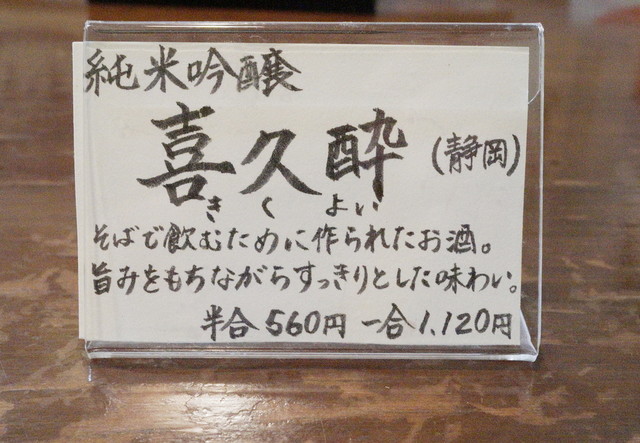 純米吟醸
喜久酔 (静岡)
きくよい
そばで飲むために作られたお酒。
旨みをもちながらすっきりとした味わい。
半合560円 一合1,120円